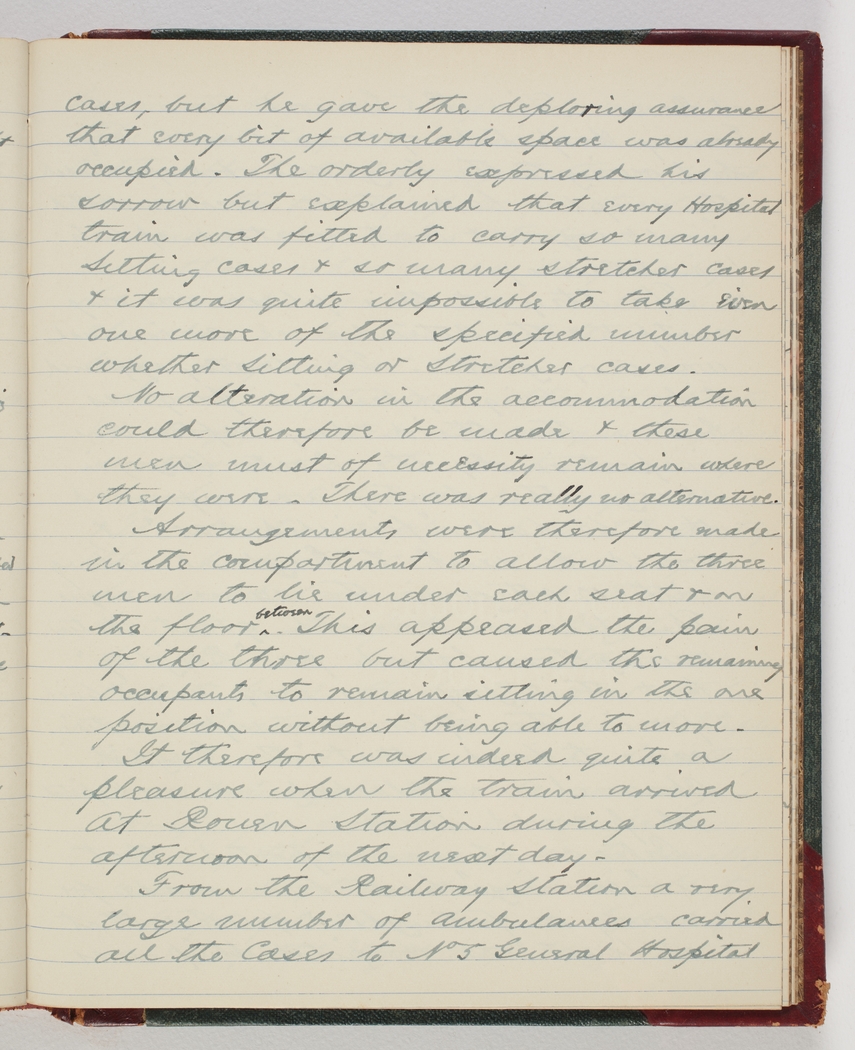 cases, but he gave the deploring assurance
that every bit of available space was already
occupied. The orderly expressed his
sorrow but explained that every Hospital
train was fitted to carry so many
sitting cases & so many stretcher cases
& it was quite impossible to take even
one more of the specified number
whether sitting or stretcher cases.
No alteration in the accommodation
could therefore be made & these
men must of necessity remain where
they were. There was really no alternative.
Arrangements were therefore made
in the compartment to allow the three
men to lie under each seat & on
the floor between. This appeased the pain
of the three but caused the remaining
occupants to remain sitting in the one
position without being able to move.
It therefore was indeed quite a
pleasure when the train arrived
at Rouen Station during the
afternoon of the next day.
From the Railway Station a very
large number of ambulances carried
all the Cases to No 5 General Hospital